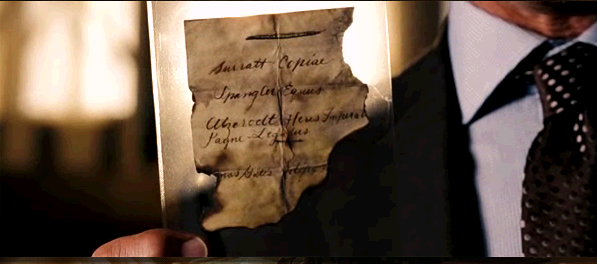 Surratt Copiae
Spangler Equus
Atzerodt Herus Imperat
Payne Legatus